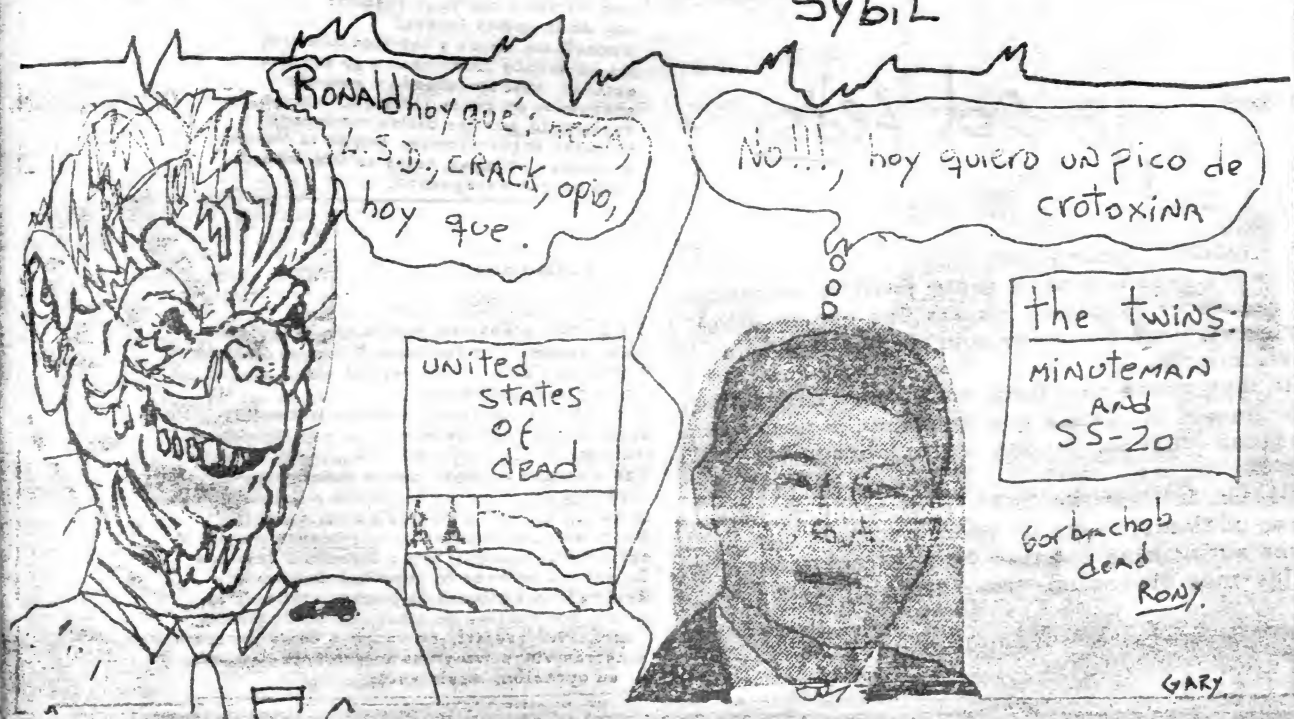 SYBIL
RONALd hoy qué; merca,
L.S.D., CRACK, opio,
hoy que.
No!!!, hoy quiero un pico de
crotoxina
united
states
of
dead
the twins:
MINUTEMAN
ANd
SS-20
Gorbachob
dead
RONY.
GARY